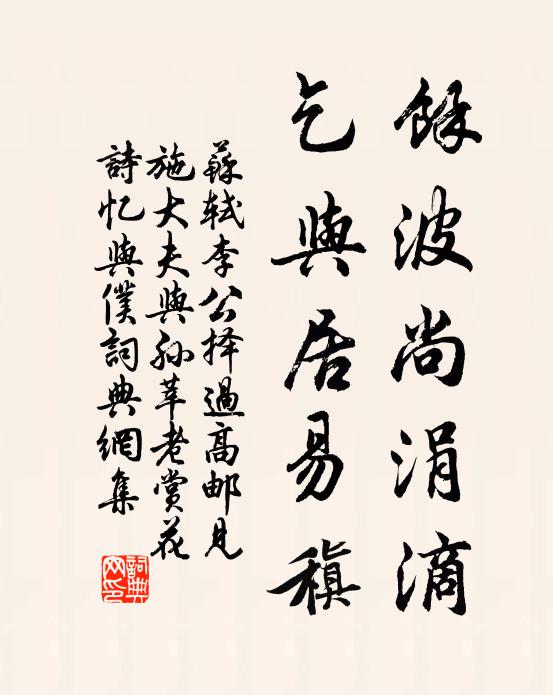 餘波尚涓滴
乞與居易稹
蘇軾李公择過高邮見
施大夫與孙莘老賞花
詩忆與僕詞典網集
詞典
网印